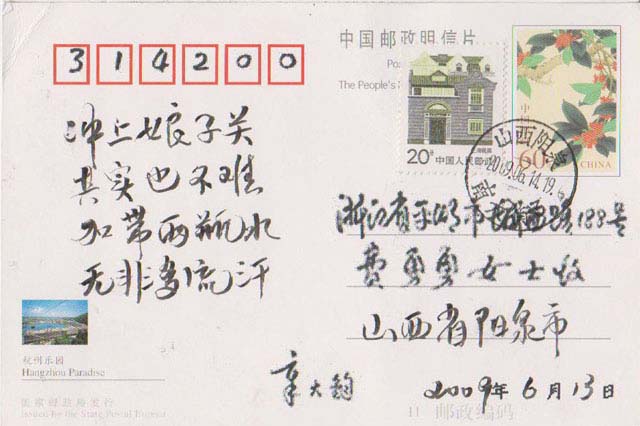 314200
中国邮政明信片
Po
The People's
20分 中国人民邮政
中国
60分
CHINA
山西阳泉
2009.06.14.19
冲上娘子关
其实也不难
加带两瓶水
无非多流汗
浙江省平湖市 路188号
费勇勇女士收
山西省阳泉市
章大钧
2009年6月13日
杭州乐园
Hangzhou Paradise
国家邮政局发行
Issued by the State Postal Bureau
邮政编码